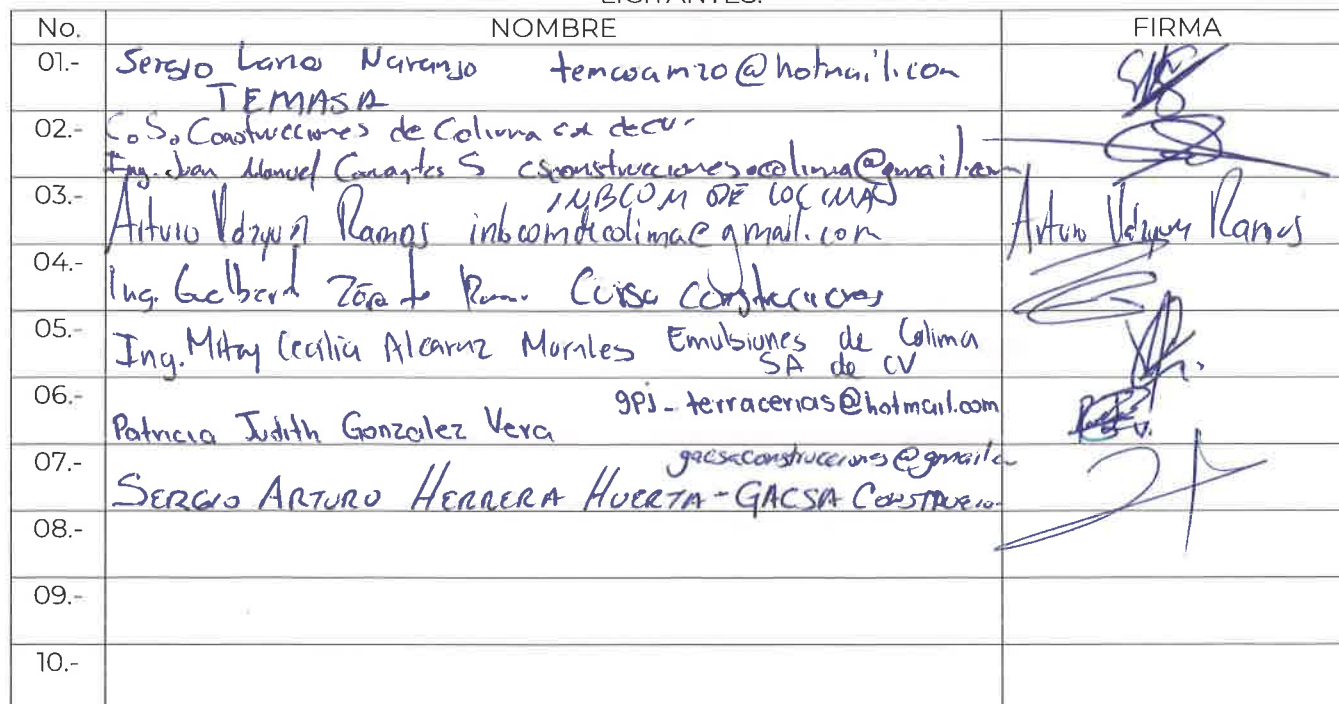 LICITANTES.
No. NOMBRE FIRMA
01.- Sergio Naranjo @hotmail.com
TEMASA
02.- C.S. Construcciones de Colima
Ing. Juan Manuel S csconstrucciones.colima@gmail.com
03.- INBCOM DE
Arturo Ramos inbcomdecolima@gmail.com Arturo Ramos
04.- Ing. Construcciones
05.- Ing. Cecilia Alcaraz Morales Emulsiones de Colima
SA de CV
06.- gpj_terracerias@hotmail.com
Patricia Judith Gonzalez Vera
07.- gacsaconstrucciones@gmail.c
SERGIO ARTURO HERRERA HUERTA-GACSA
08.-
09.-
10.-